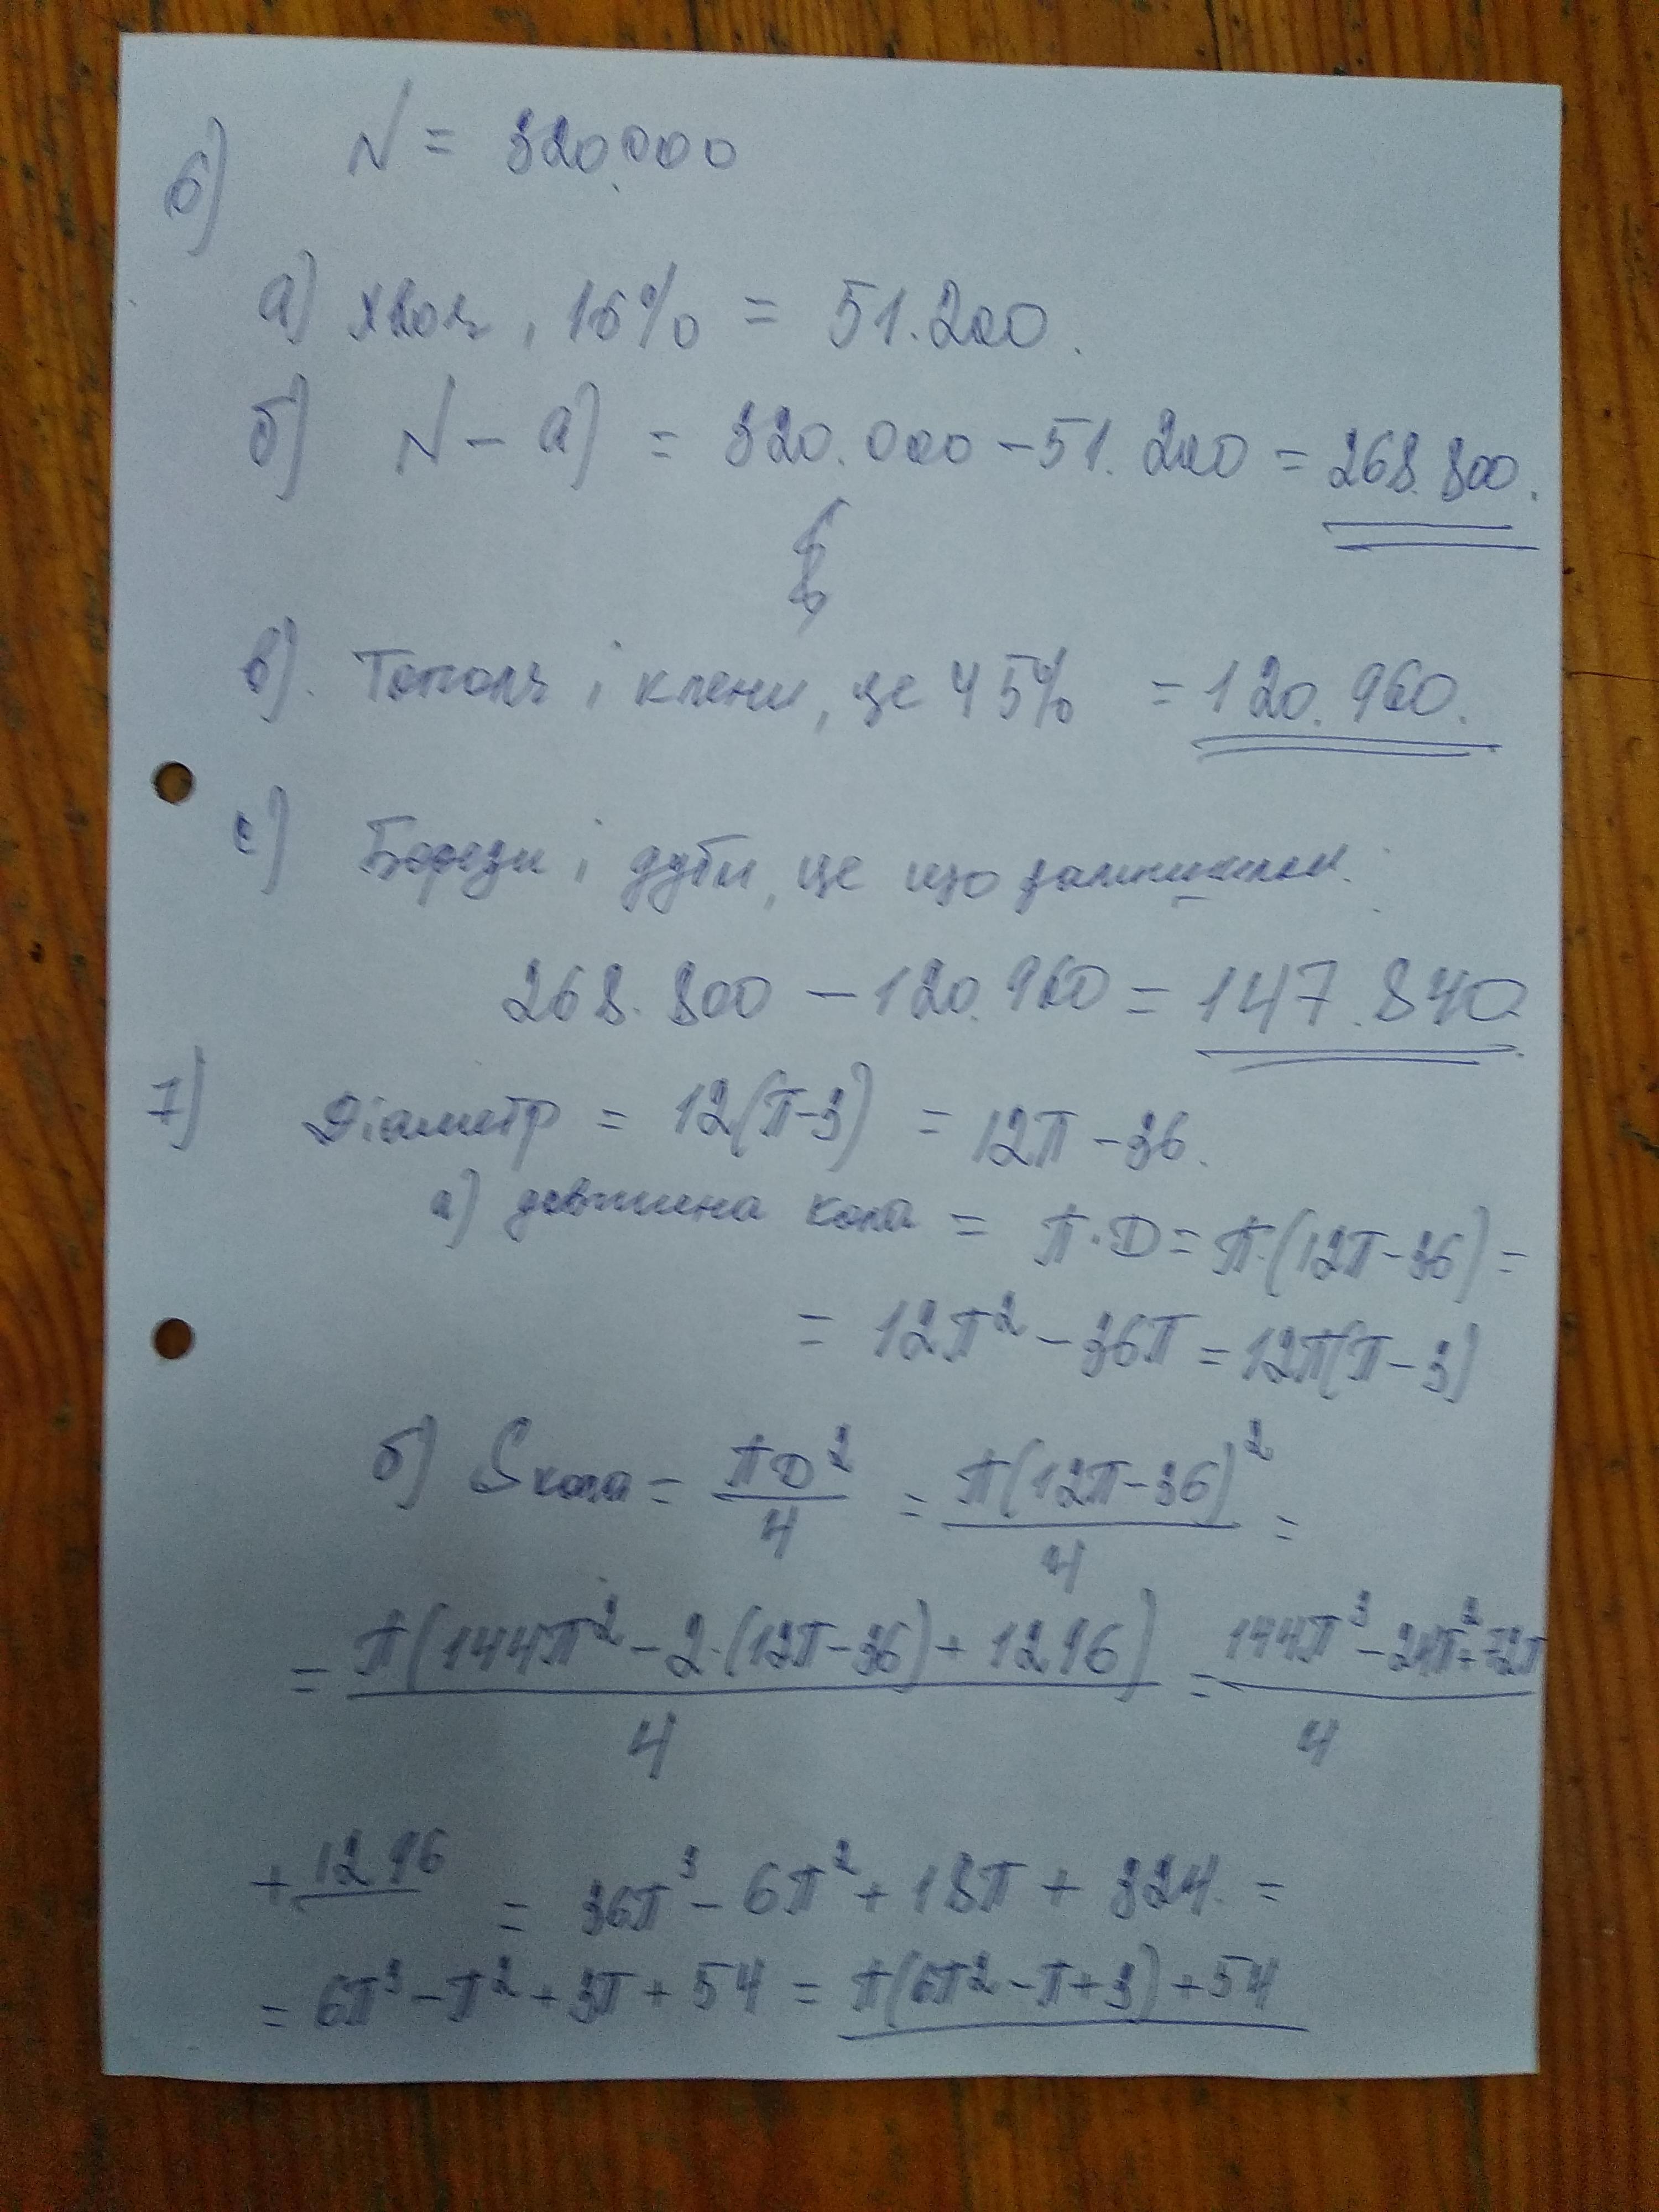 6) N = 320.000
а) хвоя, 16% = 51.200.
б) N - а) = 320.000 - 51.200 = 268.800.
в). Тополя і клени, це 45% = 120.960.
с) Берези і дуби, це що залишилось.
268.800 - 120.960 = 147.840
7) Діаметр = 12(π-3) = 12π - 36.
а) довжина кола = π·D = π·(12π-36) =
= 12π² - 36π = 12π(π-3)
б) Sкола = πD²/4 = π(12π-36)²/4 =
= π(144π² - 2·(12π-36) + 1296)/4 = 144π³ - 24π² + 72π/4
+ 1296 = 36π³ - 6π² + 18π + 324. =
= 6π³ - π² + 3π + 54 = π(6π² - π + 3) + 54